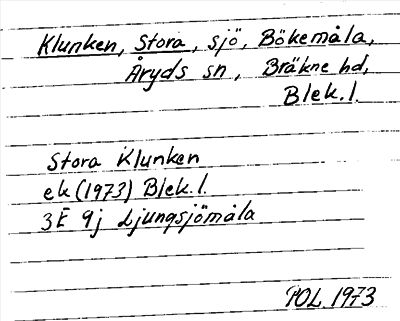 Klunken, Stora, sjö, Bökemåla,
Åryds sn, Bräkne hd,
Blek. l.
Stora Klunken
ek (1973) Blek. l.
3E 9j Ljungsjömåla
POL. 1973